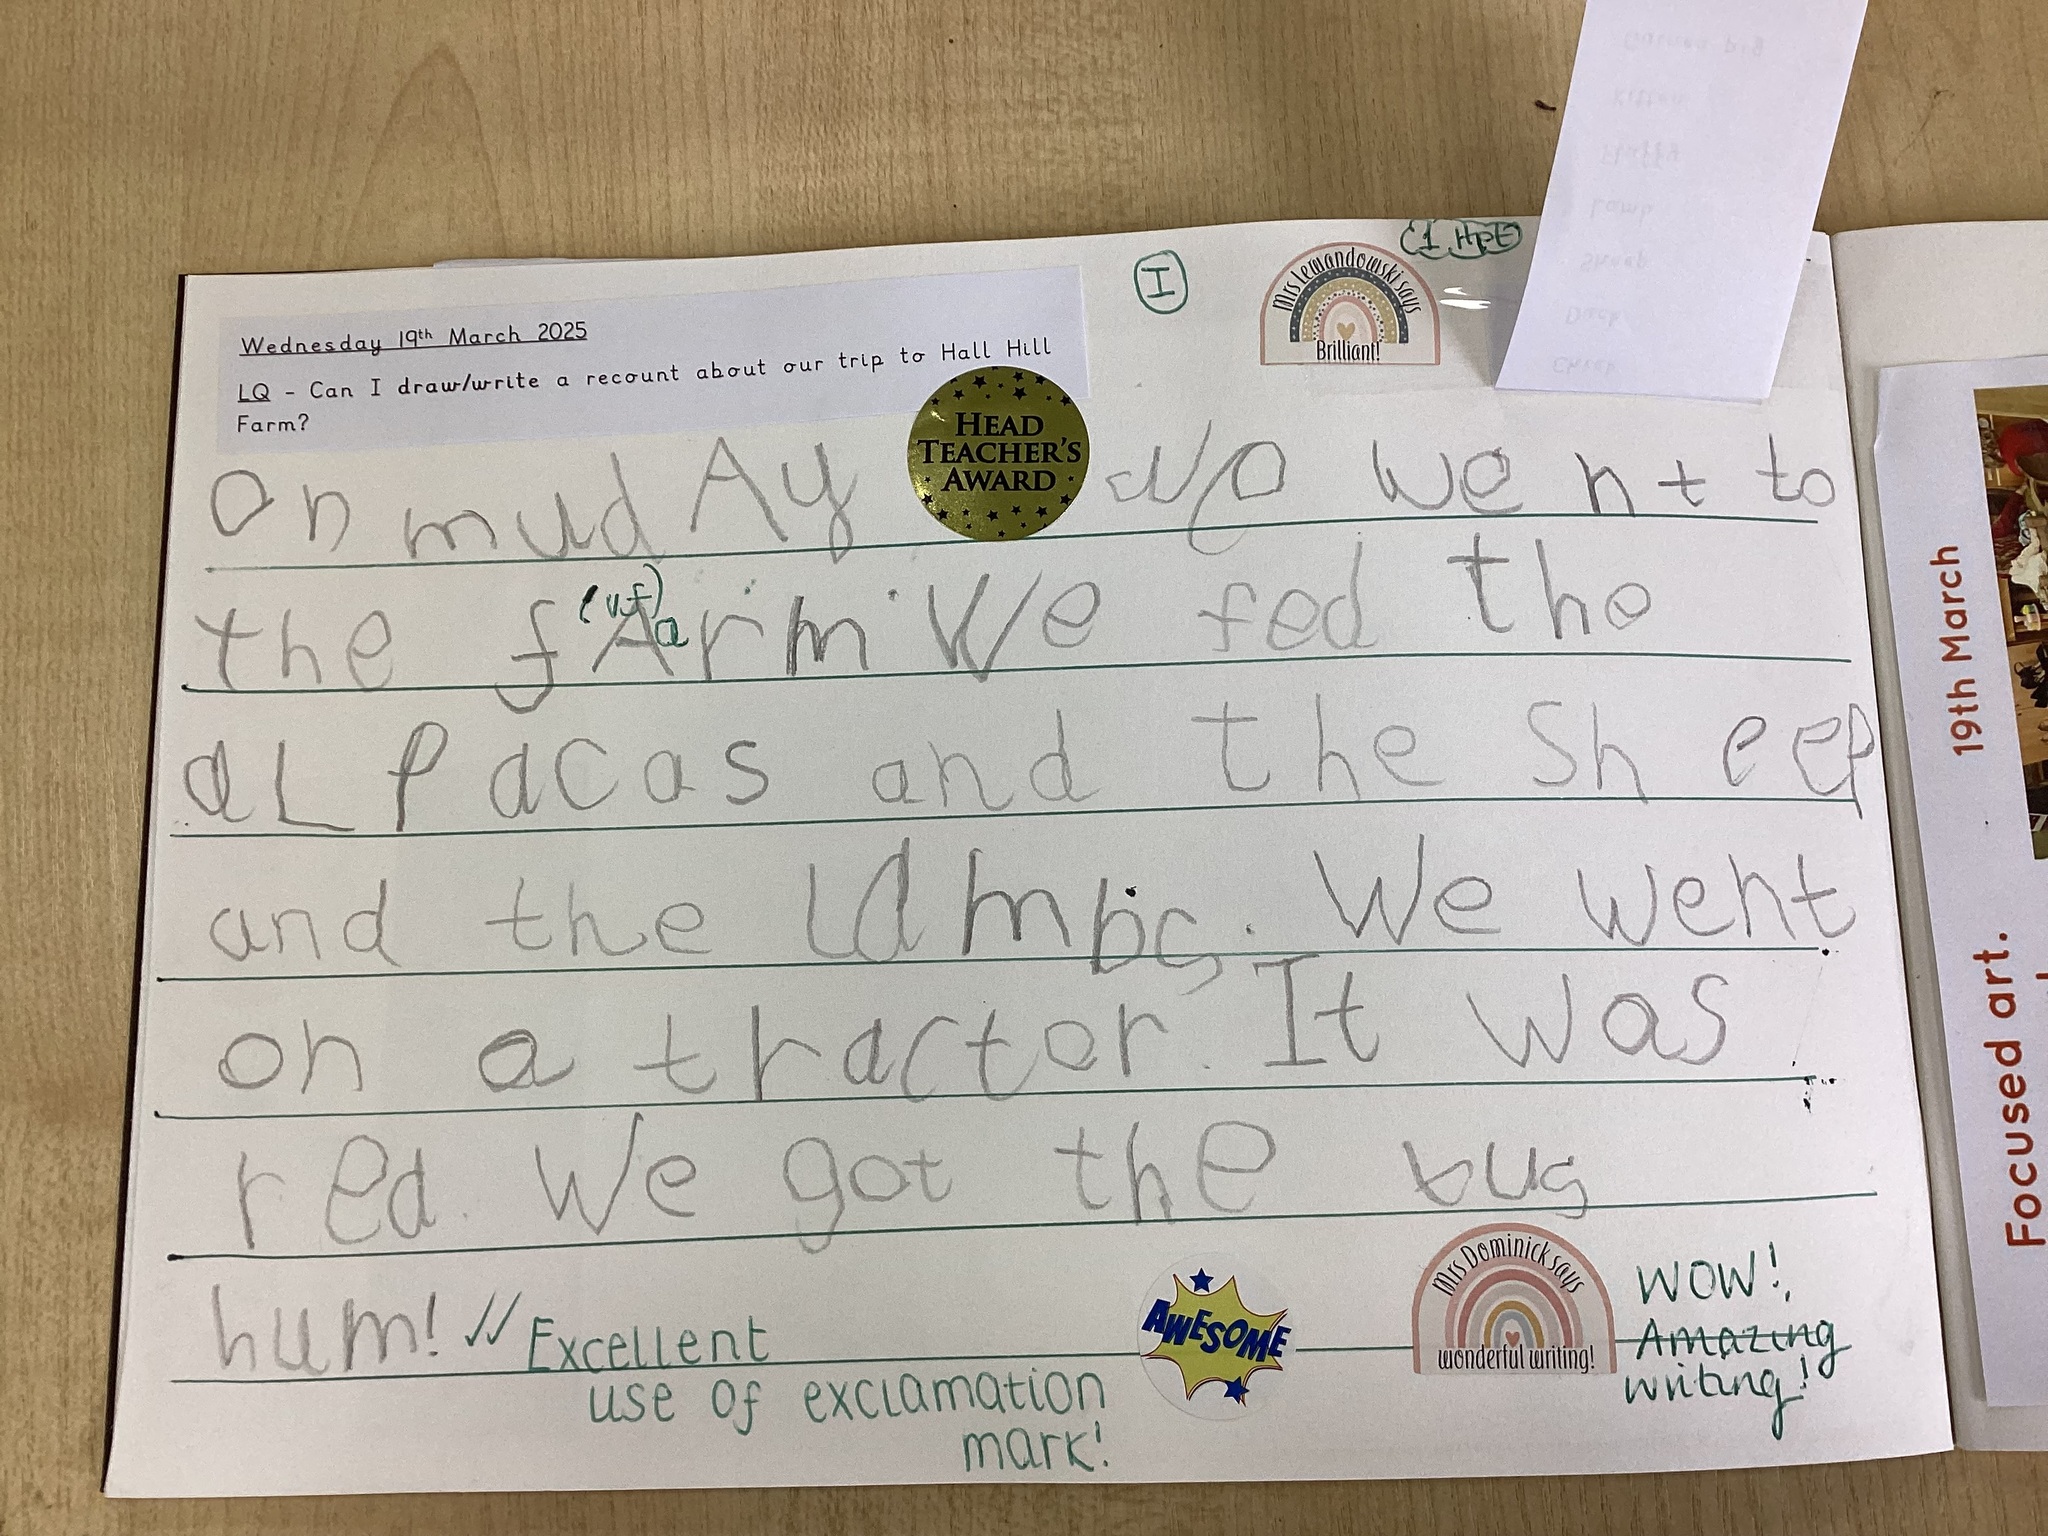 (1 HpE)
I
Mrs Lewandowski says
Brilliant!
Guinea pig
Kitten
Fluffy
Lamb
Sheep
Duck
Chick
Wednesday 19th March 2025
LQ - Can I draw/write a recount about our trip to Hall Hill
Farm?
HEAD
TEACHER'S
AWARD
On mudAy we went to
(vf)
the fArm We fed the
a
aLpacas and the Sheep
and the lambs. We went
on a tractor. It was
red. We got the bus
hum! Excellent
use of exclamation
mark!
AWESOME
Mrs Dominick says
wonderful writing!
WOW!
Amazing
writing!
19th March
Focused art.